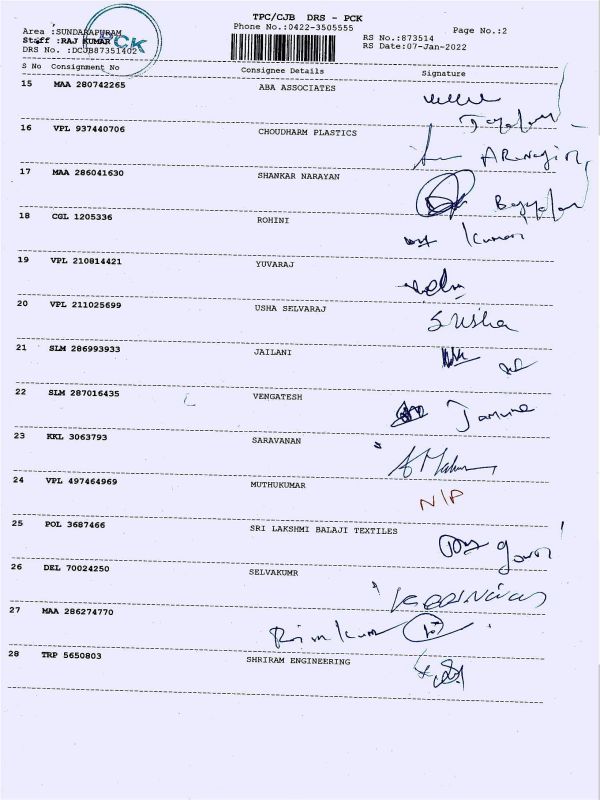 TPC/CJB DRS - PCK
Phone No.:0422-3505555
Area :SUNDARAPURAM
Staff :RAJ KUMAR
DRS No. :DCJB87351402
PCK
RS No.:873514
RS Date:07-Jan-2022
Page No.:2
S No Consignment No Consignee Details Signature
15 MAA 280742265 ABA ASSOCIATES
16 VPL 937440706 CHOUDHARM PLASTICS
17 MAA 286041630 SHANKAR NARAYAN
18 CGL 1205336 ROHINI Kumar
19 VPL 210814421 YUVARAJ
20 VPL 211025699 USHA SELVARAJ S Usha
21 SLM 286993933 JAILANI
22 SLM 287016435 VENGATESH
23 KKL 3063793 SARAVANAN
24 VPL 497464969 MUTHUKUMAR N/P
25 POL 3687466 SRI LAKSHMI BALAJI TEXTILES
26 DEL 70024250 SELVAKUMR
27 MAA 286274770
28 TRP 5650803 SHRIRAM ENGINEERING